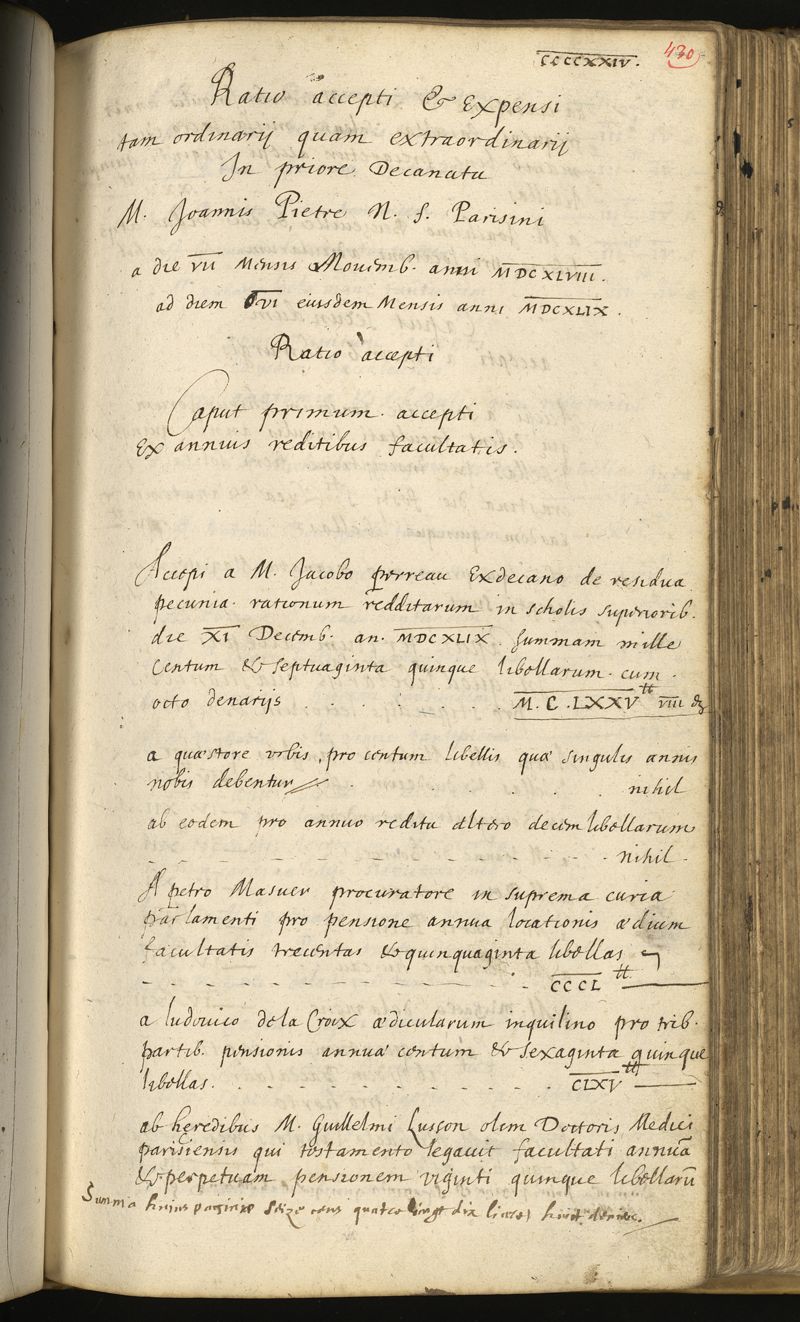 CCCCXXIV.
430
Ratio accepti & Expensi
tam ordinarij quam extraordinarij
In priore Decanatu
M. Joannis Pietre N. f. Parisini
a die VII Mensis Novemb. anni MDCXLVIII.
ad diem VI eiusdem Mensis anni MDCXLIX.
Ratio accepti
Caput primum. accepti
Ex annuis reditibus facultatis.
Accepi a M. Jacobo perreau Exdecano de residua
pecunia. rationum redditarum in scholis superiorib.
die XI Decemb. an. MDCXLIX. summam mille
centum & septuaginta quinque libellarum. cum.
octo denarijs . . . . . . M. C. LXXV ₶ VIII d
a quæstore urbis, pro centum libellis quæ singulis annis
nobis debentur . . . . . . nihil
ab eodem pro annuo reditu altero decem libellarum
. . . . . . nihil.
A petro Masuer procuratore in suprema curia
parlamenti pro pensione annua locationis ædium
facultatis trecentas & quinquaginta libellas
. . . . . . CCCL ₶
a ludovico de la Croix ædicularum inquilino pro trib.
partib. pensionis annuæ centum & sexaginta quinque
libellas. . . . . . . CLXV ₶
ab heredibus M. Guillelmi Lusson olim Doctoris Medici
parisiensis qui testamento legavit facultati annuā
& perpetuam pensionem viginti quinque libellarū
Summa huius paginæ seize cens quatre vingt dix livres huict deniers.